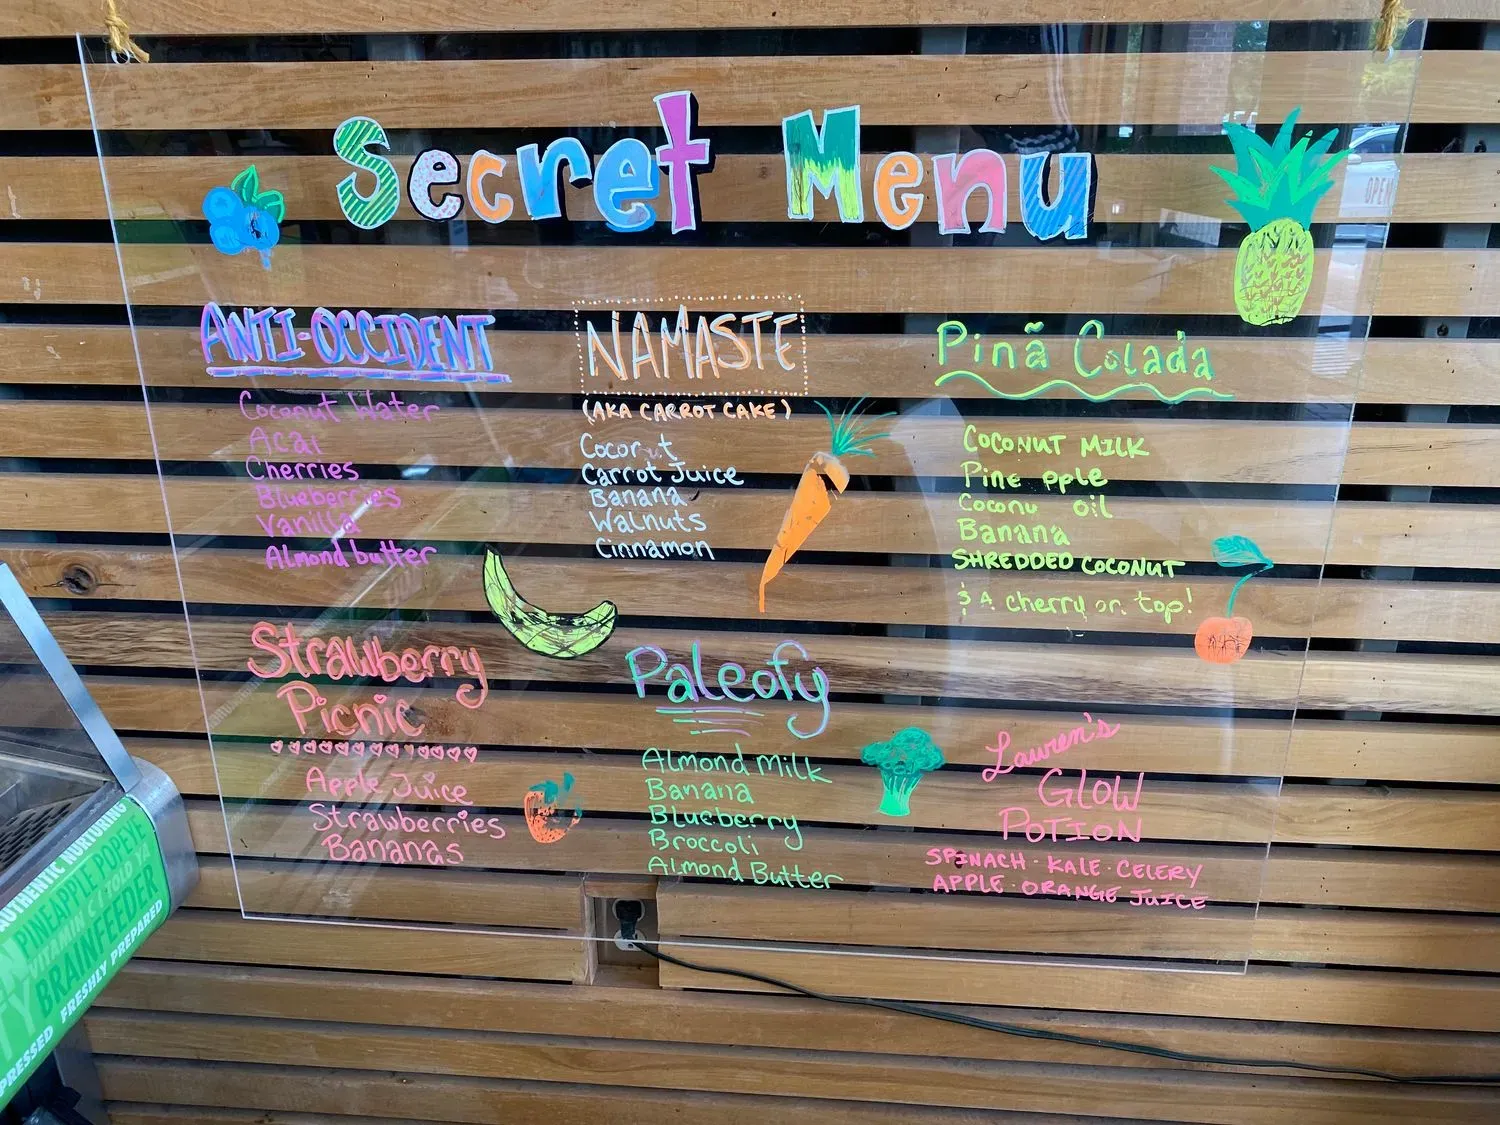 Secret Menu
ANTI-OCCIDENT
Coconut Water
Acai
Cherries
Blueberries
Vanilla
Almond butter
NAMASTE
(AKA CARROT CAKE)
Coconut
Carrot Juice
Banana
Walnuts
Cinnamon
Pinã Colada
COCONUT MILK
Pine pple
Coconu oil
Banana
SHREDDED COCONUT
& A cherry on top!
Strawberry
Picnic
Apple Juice
Strawberries
Bananas
Paleofy
Almond Milk
Banana
Blueberry
Broccoli
Almond Butter
Lauren's
GLOW
POTION
SPINACH · KALE · CELERY
APPLE · ORANGE JUICE
OPEN
AUTHENTIC NURTURING
PINEAPPLE POPEYE
VITAMIN C I TOLD YA
BRAINFEEDER
FRESHLY PREPARED
PRESSED